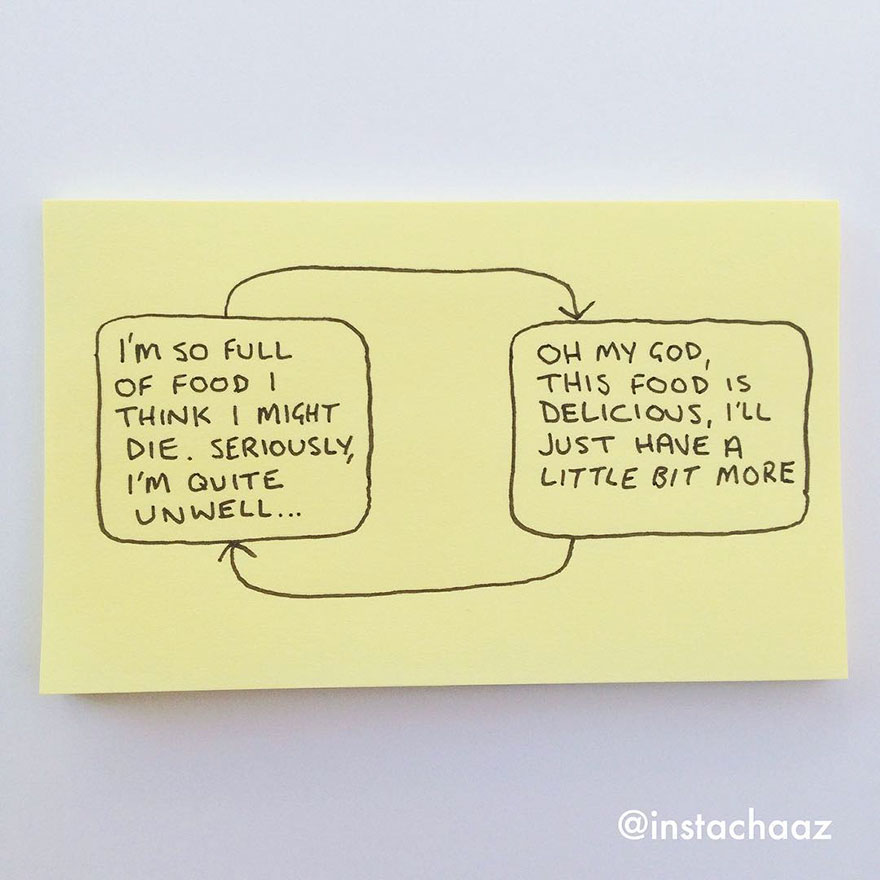 I'M SO FULL
OF FOOD I
THINK I MIGHT
DIE. SERIOUSLY,
I'M QUITE
UNWELL...
OH MY GOD,
THIS FOOD IS
DELICIOUS, I'LL
JUST HAVE A
LITTLE BIT MORE
@instachaaz